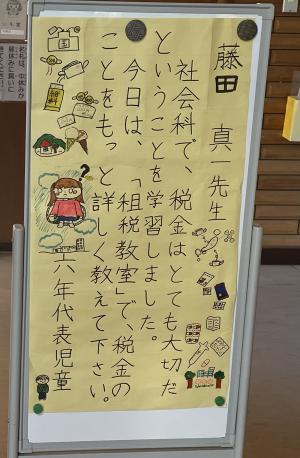 藤田　真一先生
社会科で、税金はとても大切だ
ということを学習しました。
今日は、「租税教室」で、税金の
ことをもっと詳しく教えて下さい。
六年代表児童